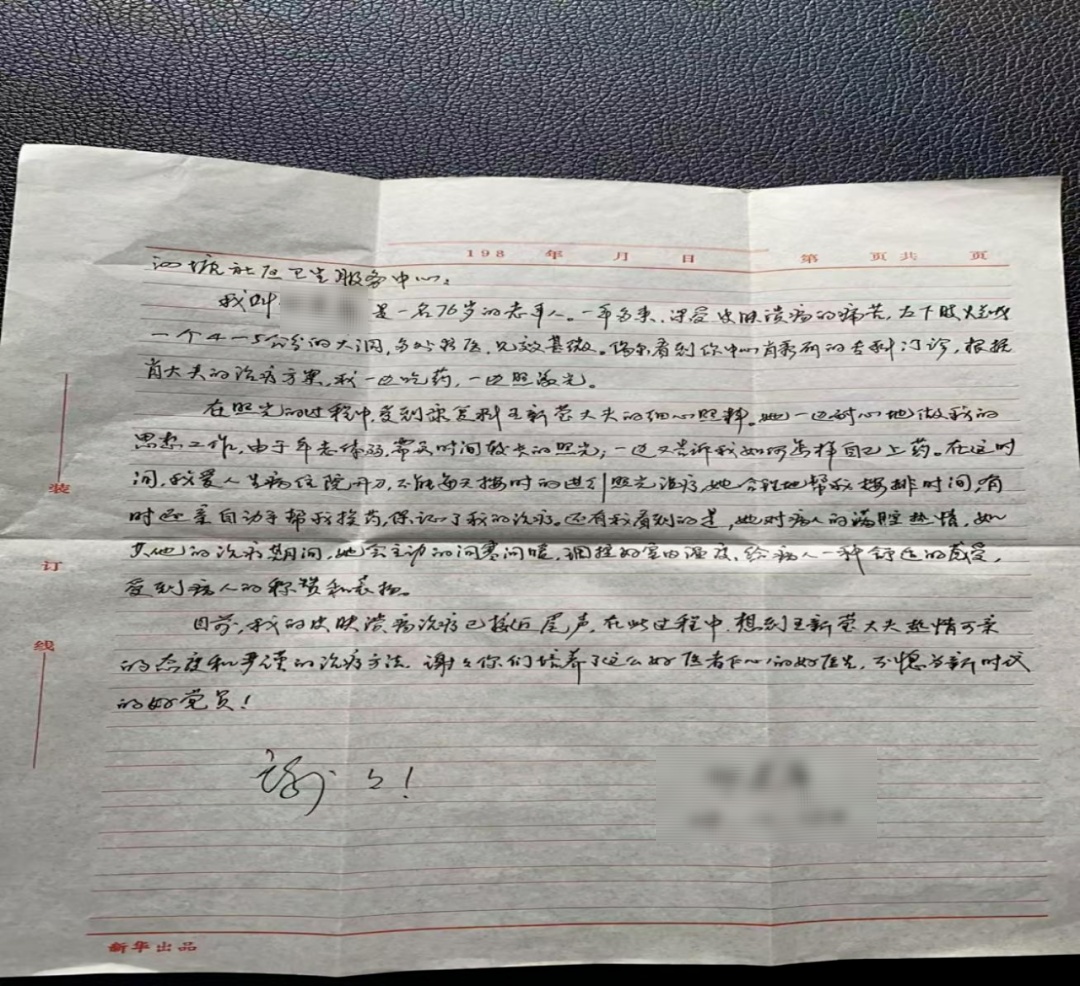 198 年 月 日 第 页共 页
泗塘社区卫生服务中心:
我叫 是一名76岁的老年人。一年多来,深受皮肤溃疡的痛苦,左下肢
一个4-5公分的大洞,多处求医,见效甚微。偶尔看到你中心肖秀丽的专科门诊,根据
肖大夫的治疗方案,我一边吃药,一边照激光。
在照光的过程中,受到康复科王新莹大夫的细心照料。她一边耐心地做我的
思想工作,由于年老体弱,需要时间较长的照光,一边又告诉我如何怎样自己上药。在这时
间,我爱人生病住院开刀,不能每天按时的进行照光治疗,她合理地帮我按排时间,有
时还亲自动手帮我换药,保证了我的治疗。还有我看到的是,她对病人的满腔热情,如
其他的治疗期间,她会主动的问寒问暖,调控好室内温度,给病人一种舒适的感受,
受到病人的称赞和表扬。
目前,我的皮肤溃疡治疗已接近尾声,在此过程中,想到王新莹大夫热情可亲
的态度和严谨的治疗方法,谢谢你们培养了这么好医者仁心的好医生,不愧为新时代
的好党员!
谢谢!
装
订
线
新华出品